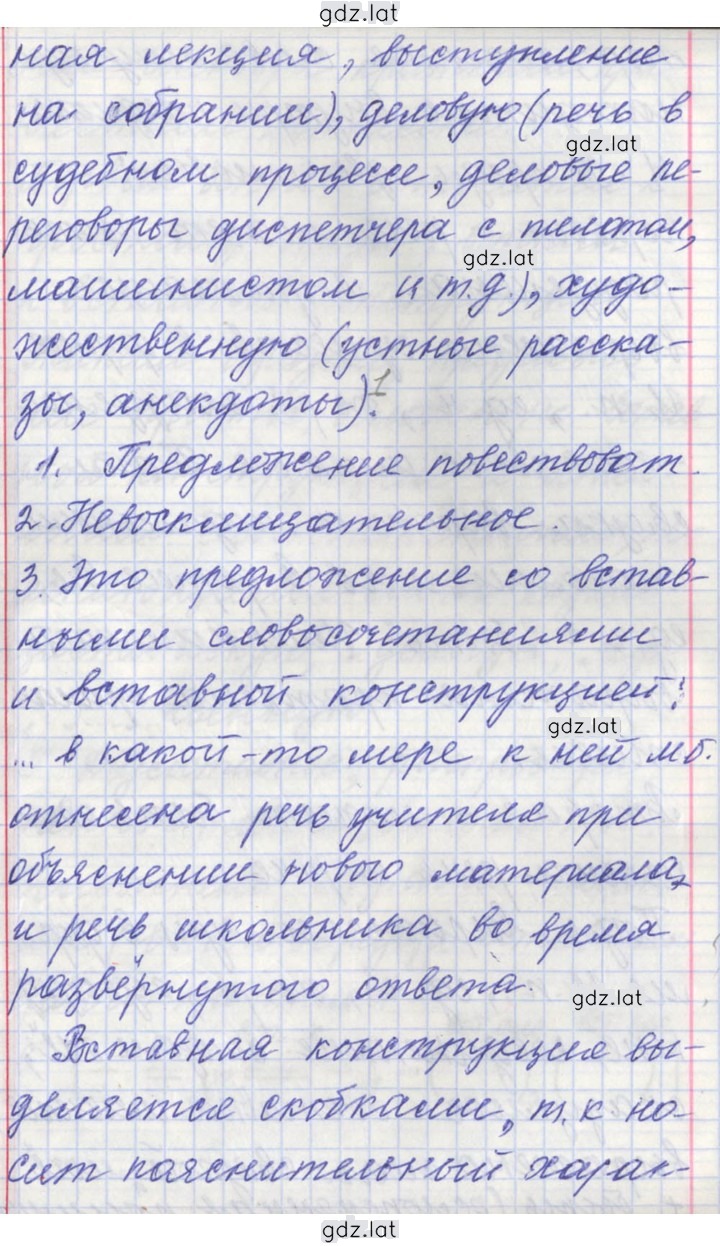 gdz.lat
ная лекция, выступление
на собрании), деловую (речь в
gdz.lat
судебном процессе, деловые пе-
реговоры диспетчера с пилотом,
gdz.lat
машинистом и т.д.), худо-
жественную (устные расска-
зы, анекдоты).1
1. Предложение повествоват.
2. Невосклицательное.
3. Это предложение со встав-
ными словосочетаниями
и вставной конструкцией:
gdz.lat
... в какой-то мере к ней м б.
отнесена речь учителя при
объяснении нового материала,
и речь школьника во время
развёрнутого ответа.
gdz.lat
Вставная конструкция вы-
деляется скобками, т.к но-
сит пояснительный харак-
gdz.lat